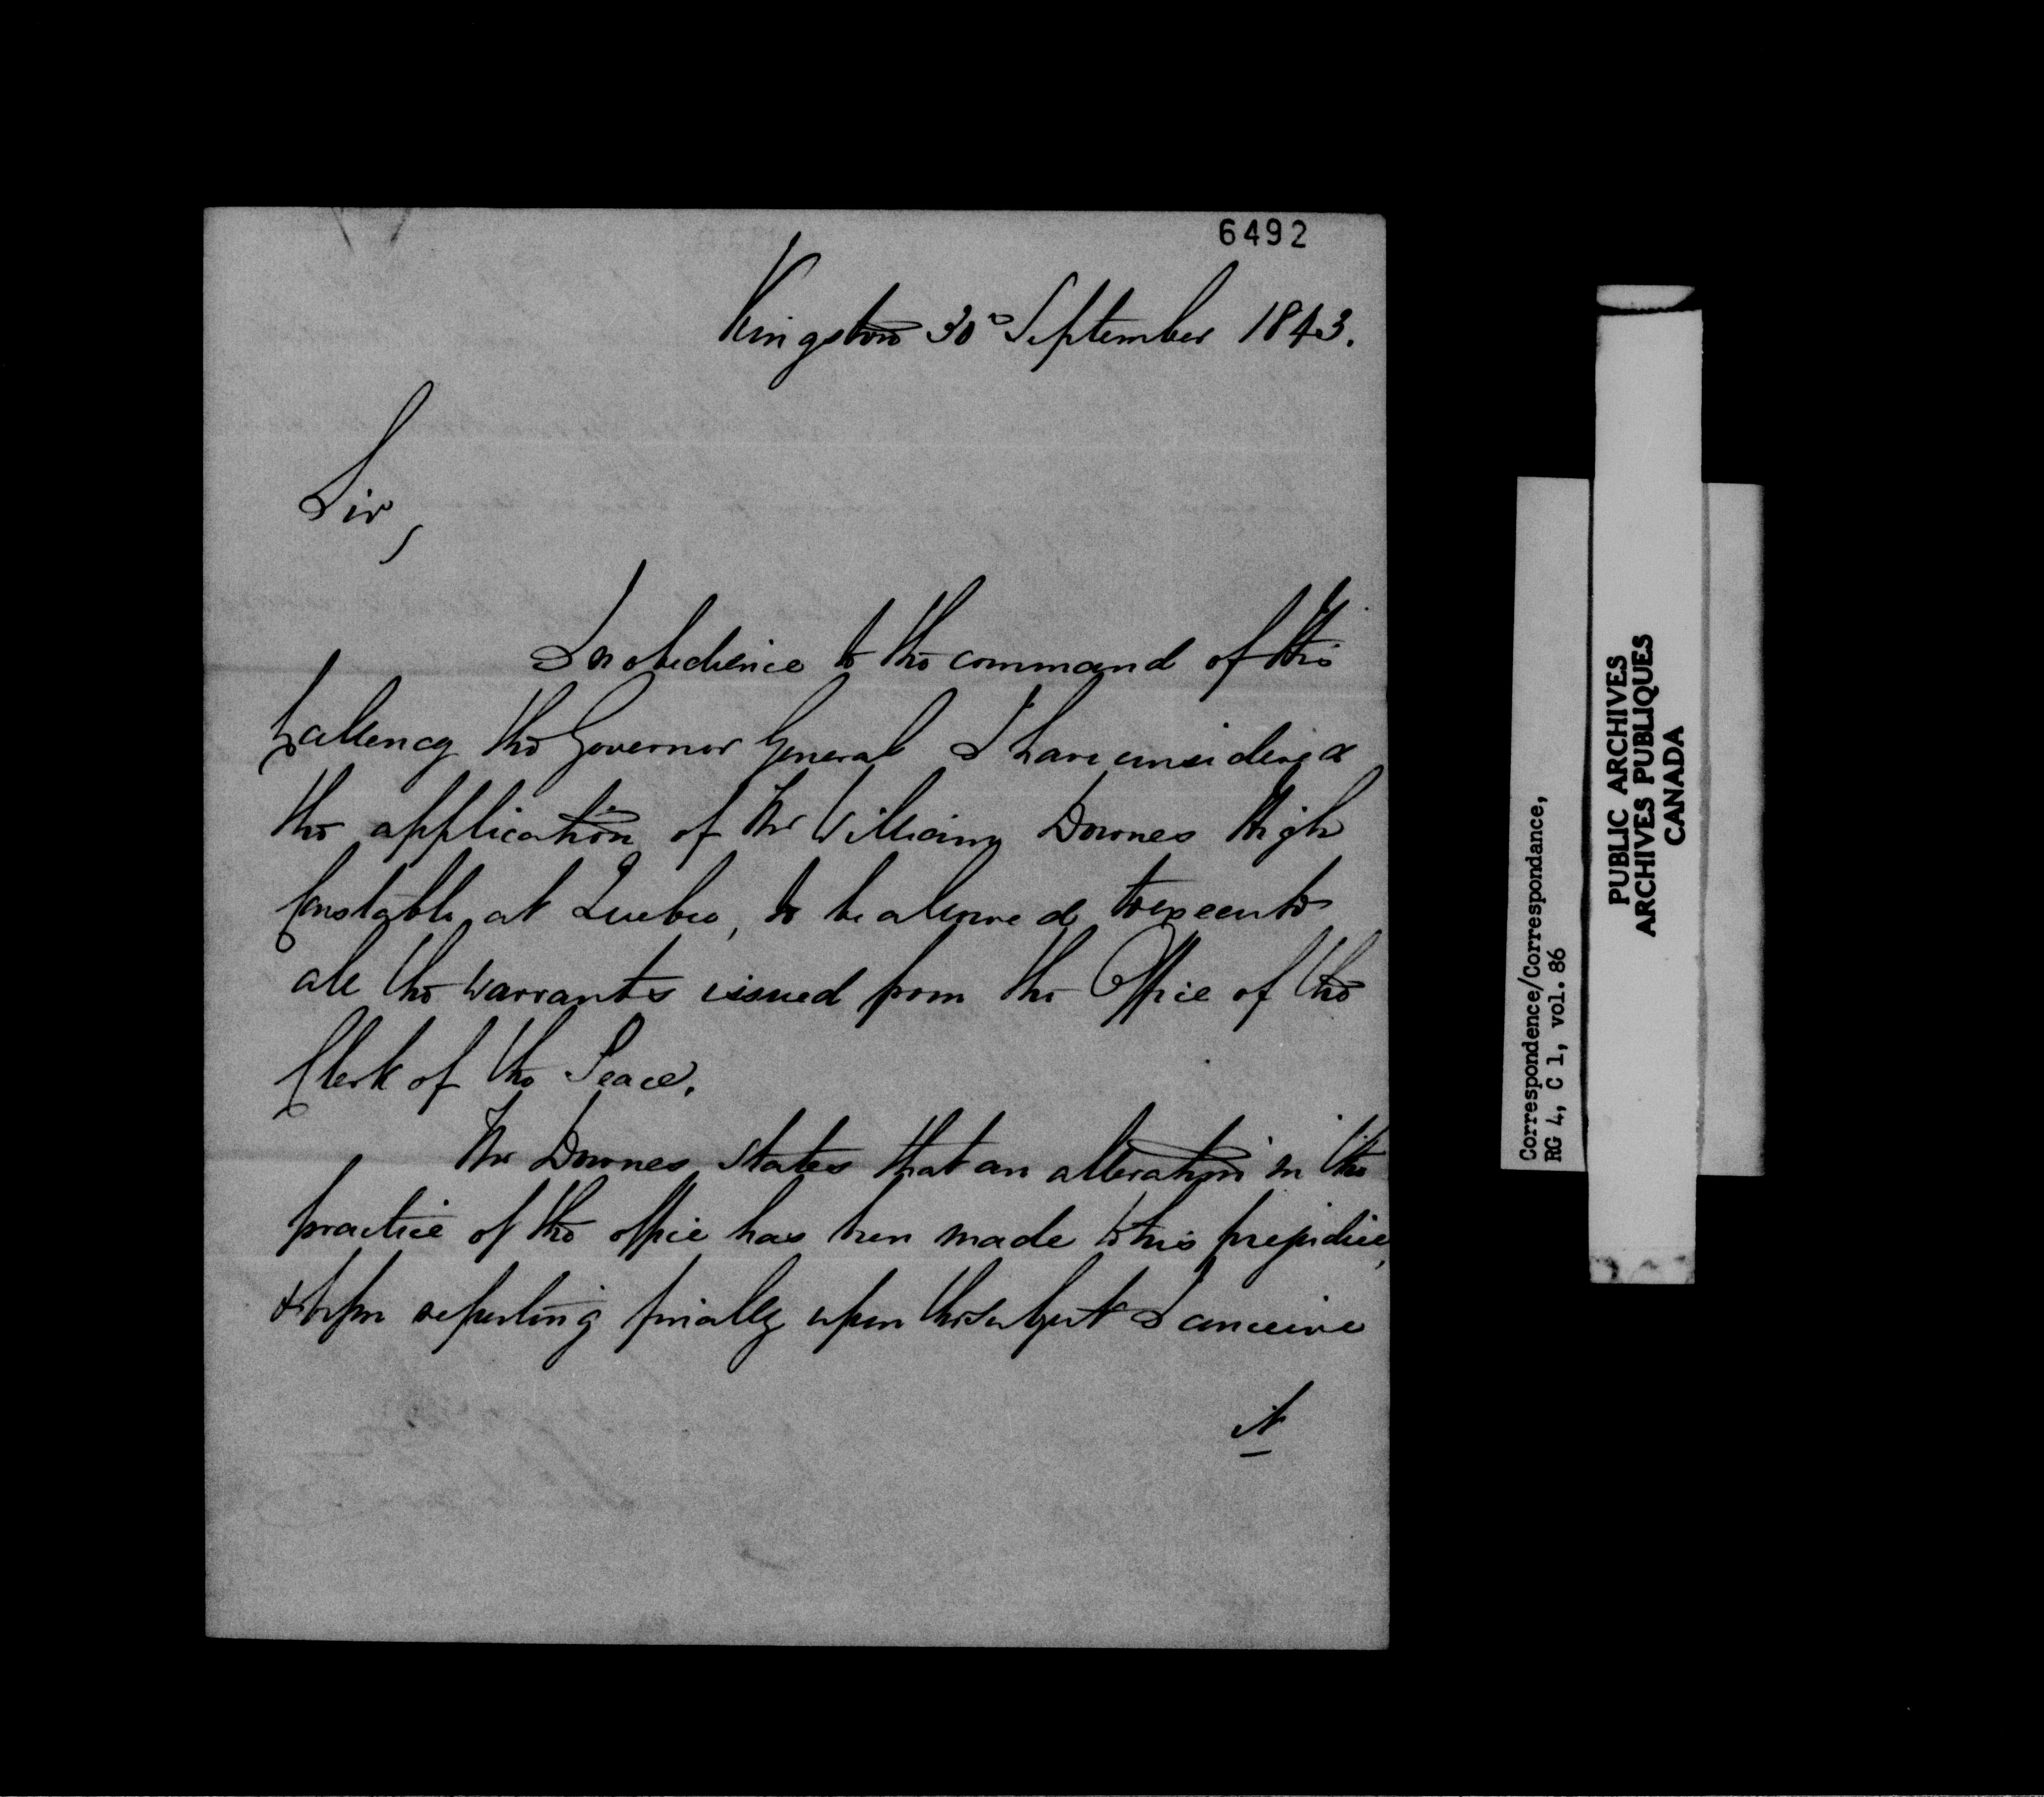 6492
Kingston 30d September 1843.
Sir,
In obedience to the command of His
Excellency the Governor General I have considered
the application of Mr William Downes High
Constable, at Quebec, to be allowed to execute
all the warrants issued from the Office of the
Clerk of the Peace.
Mr Downes states that an alteration in the
practice of the office has been made to his prejudice,
& before reporting finally upon the subject I conceive
it
Correspondence/Correspondance,
RG 4, C 1, vol. 86
PUBLIC ARCHIVES
ARCHIVES PUBLIQUES
CANADA